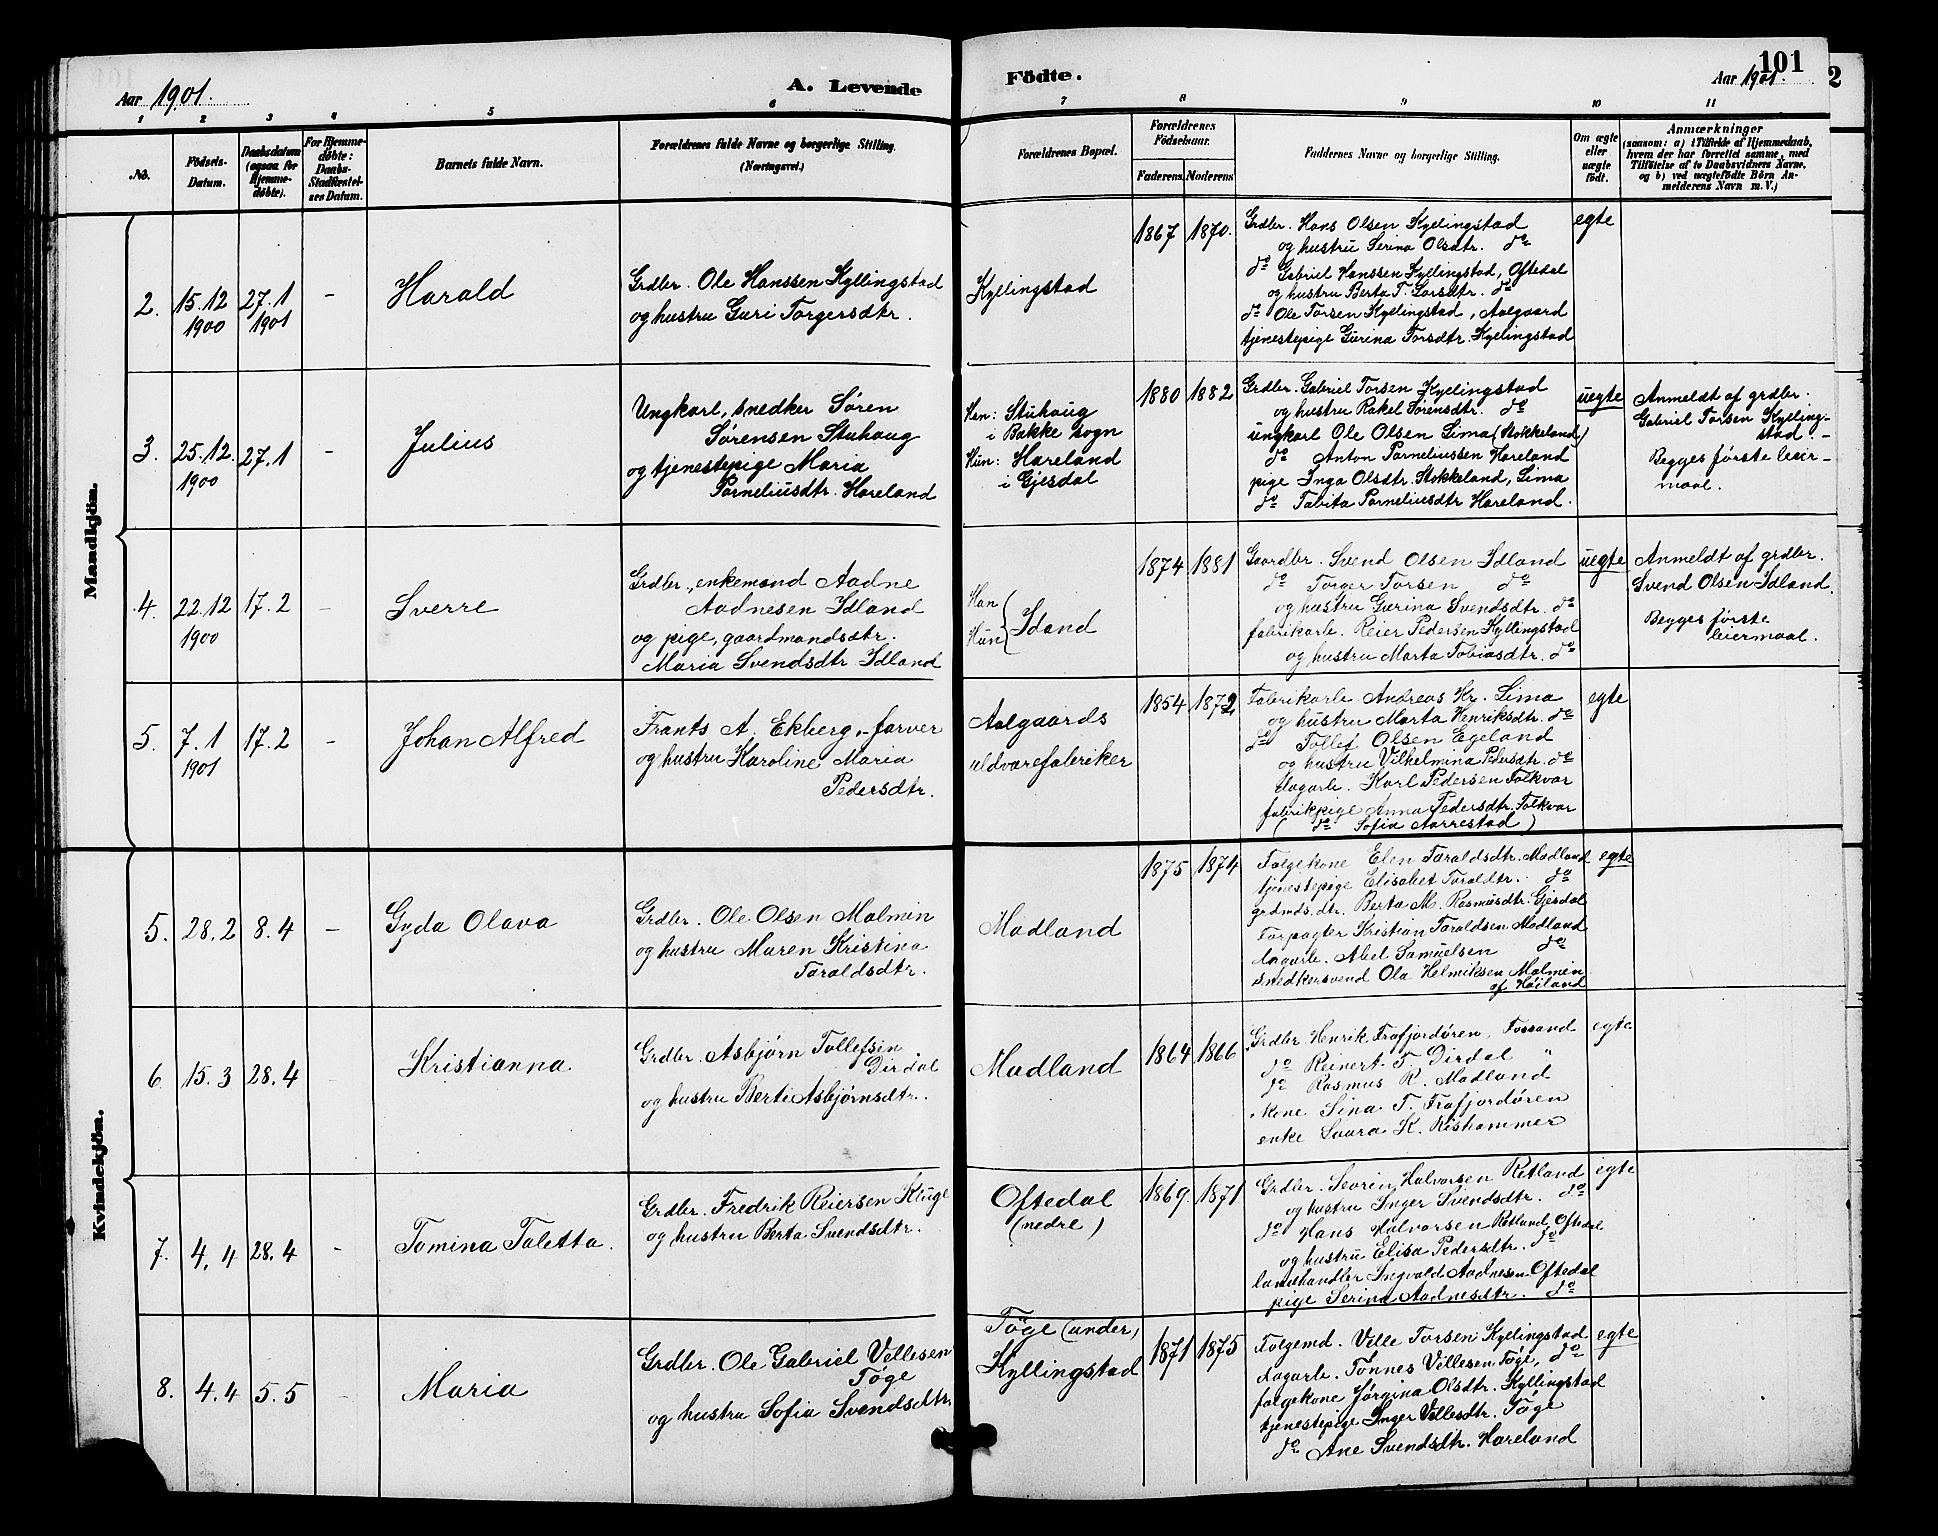 101
2
Aar 1901.
A. Levende
Födte.
Aar 1901.
1 2 3 4 5 6 7 8 9 10 11
No.
Födsels-
Datum.
Daabsdatum
(ogsaa for
Hjemme-
døbte).
For Hjemme-
døbte:
Daabs-
Stadfæstel-
ses Datum.
Barnets fulde Navn.
Forældrenes fulde Navne og borgerlige Stilling.
(Næringsvei.)
Forældrenes Bopæl.
Forældrenes
Födselsaar.
Faderens. Moderens
Faddernes Navne og borgerlige Stilling.
Om ægte
eller
uægte
født.
Anmærkninger
(saasom: a) i Tilfælde af Hjemmedaab,
hvem der har forrettet samme, med
Tilföielse af to Daabsvidners Navne.
og b) ved uægtefödte Börn An-
melderens Navn m. V.)
Mandkjön.
2. 15.12
1900
27.1
1901
-
Harald
Grdbr. Ole Hanssen Kyllingstad
og hustru Guri Torgersdtr.
Kyllingstad
1867 1870.
Grdbr. Hans Olsen Kyllingstad
og hustru Serina Olsdtr. do
do Gabriel Hanssen Kyllingstad, Oftedal
og hustru Berta T. Larsdtr. do
do Ole Torsen Kyllingstad, Aalgaard
tjenestepige Gurina Torsdtr. Kyllingstad
egte
3. 25.12.
1900
27.1
-
Julius
Ungkarl, snedker Søren
Sørensen Stuhaug
og tjenestepige Maria
Parneliusdtr. Hareland
Han: Stuhaug
i Bakke sogn
Hun: Hareland
i Gjesdal
1880 1882
Grdbr. Gabriel Torsen Kyllingstad
og hustru Rakel Sørensdtr. do
ungkarl Ole Olsen Lima (Stokkeland)
do Anton Parneliussen Hareland
pige Inga Olsdtr. Stokkeland, Lima
do Tabita Parneliusdtr Hareland.
uegte
Anmeldt af grdbr.
Gabriel Torsen Kylling-
stad. -
Begges første leier-
maal.
4. 22.12
1900
17.2
-
Sverre
Grdbr., enkemand Aadne
Aadnesen Idland
og pige, gaardmandsdtr.
Maria Svendsdtr Idland
Han
Hun
Idand
1874 1881
Gaardbr. Svend Olsen Idland
do Torger Torsen do
og hustru Gurina Svendsdtr. do
fabrikarb. Reier Pedersen Kyllingstad
og hustru Marta Tobiasdtr. do
uegte
Anmeldt af grdbr.
Svend Olsen Idland.
Begges første
leiermaal.
5. 7.1
1901
17.2
-
Johan Alfred
Frants A. Ekberg, farver
og hustru Karoline Maria
Pedersdtr.
Aalgaards
uldvarefabriker
1854 1872
Fabrikarb. Andreas Kr. Lima
og hustru Marta Henriksdtr. do
do Tollef Olsen Egeland
og hustru Vilhelmina Pedersdtr. do
dagarb. Karl Pedersen Folkvar
fabrikpige Anna Pedersdtr. Folkvar
( do Sofia Aarrestad )
egte
Kvindekjön.
5. 28.2 8.4 -
Gyda Olava
Grdbr. Ole Olsen Malmin
og hustru Maren Kristina
Taraldsdtr.
Madland
1875 1874
Folgekone Elen Taraldsdtr. Madland
tjenestepige Elisabet Taraldtr. do
grdmds.dtr. Berta M. Rasmusdtr. Gjesdal
Forpagter Kristian Taraldsen Madland
dagarb. Abel Samuelsen do
snedkersvend Ola Helmiksen Malmin
af Høiland
egte
6. 15.3 28.4 -
Kristianna
Grdbr. Asbjørn Tollefsen
Dirdal
og hustru Berte Asbjørnsdtr.
Madland
1864 1866
Grdbr Henrik Frafjordøren, Fossand
do Reinert T. Dirdal "
do Rasmus R. Madland
kone Sina T. Frafjordøren
enke Laura K. Rishammer
egte
7. 4.4 28.4 -
Tomina Taletta.
Grdbr. Fredrik Reiersen Kluge
og hustru Berta Svendsdtr.
Oftedal
(nedre)
1869. 1871
Grdbr. Severin Halvorsen Retland
og hustru Inger Svendsdtr. do
do Hans Halvorsen Retland, Oftedal
og hustru Elisa Pedersdtr. do
landhandler Ingvald Aadnesen Oftedal
pige Serina Aadnesdtr. do
egte
8. 4.4 5.5 -
Maria
Grdbr. Ole Gabriel Vellesen
Tøge
og hustru Sofia Svendsdtr.
Tøge (under)
Kyllingstad
1871 1875
Folgemd. Velle Torsen Kyllingstad
dagarb. Tønnes Vellesen Tøge, do
folgekone Jørgina Olsdtr. Kyllingstad
tjenestepige Inger Vellesdtr. Tøge
do Ane Svendsdtr. Hareland
egte